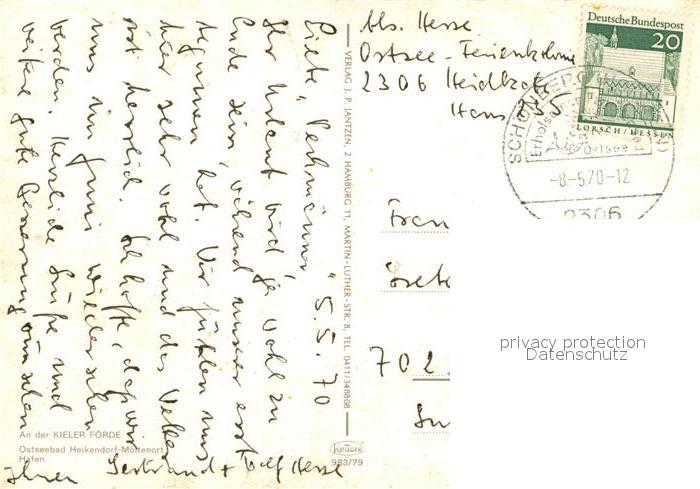 Abs. Hesse
Ostsee-Ferienkolonie
2306 Heidkate
Haus
Deutsche Bundespost
20
LORSCH/HESSEN
SCHÖNBERG
Ostsee
-8.-5.70-12
2306
5.5.70
Liebe
Ihr Urlaub wird ja wohl zu
Ende sein, während unserer erst
begonnen hat. Wir fühlen uns
hier sehr wohl und das Wetter
ist herrlich. Ich hoffe, daß wir
uns im Juni wiedersehen
werden. Herzliche Grüße und
weitere gute Genesung wünschen
Ihnen Gertraud + Rolf Hesse
VERLAG J. P. JANTZEN, 2 HAMBURG 11, MARTIN-LUTHER-STR. 8, TEL. 0411/348808
Frau
Grete
702
An der KIELER FÖRDE
Ostseebad Heikendorf-Möltenort
Hafen
KRÜGER
983/79
privacy protection
Datenschutz